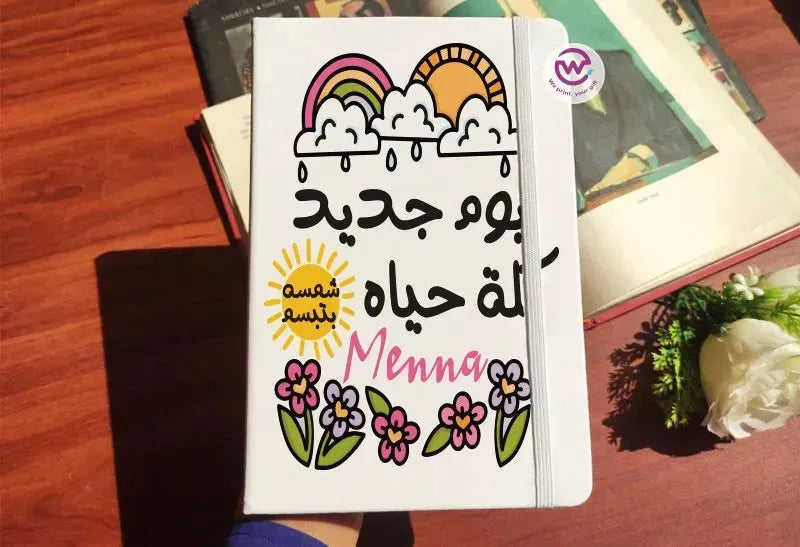 MIRRORS
We print, your gift
يوم جديد
كلة حياه
شمسه
بتبسم
Menna